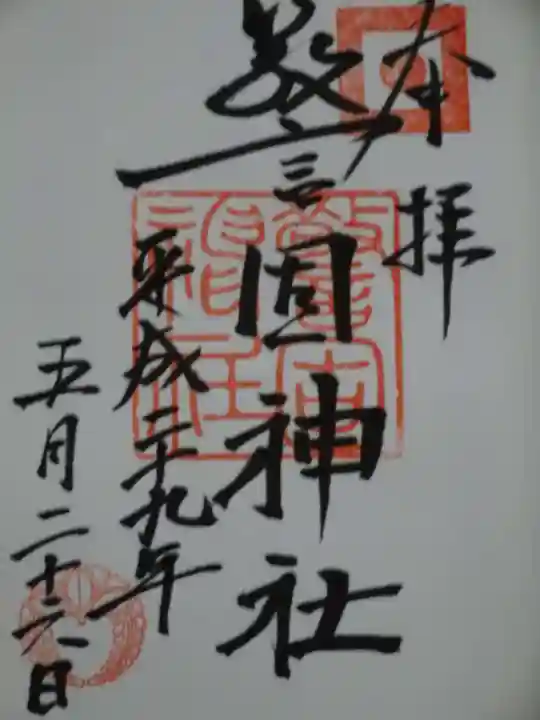 奉拝
警固神社
平成二十九年
五月二十六日